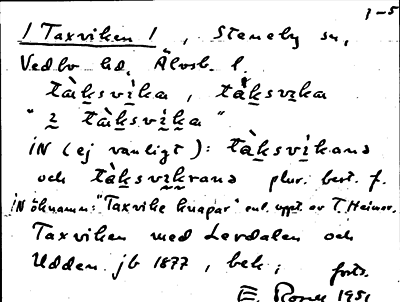 1-5
/ Taxviken / , Steneby sn,
Vedbo hd. Älvsb. l.
tàksvìka , tàksvika
" 2 tàksvìka "
iN (ej vanligt): tàksvìkana
och tàksvikrana plur. best. f.
iN öknamn: "Taxvike knapar" enl. uppt. av T. Heimer.
Taxviken med Lerdalen och
Udden jb 1877, beb;
forts.
E. 1951